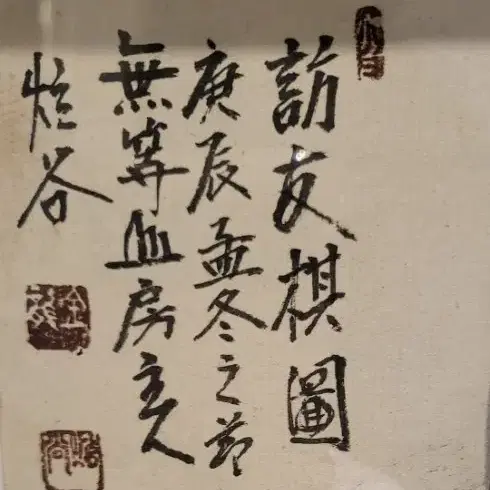 訪友棋圖
庚辰孟冬之節
無等山房主人
谷